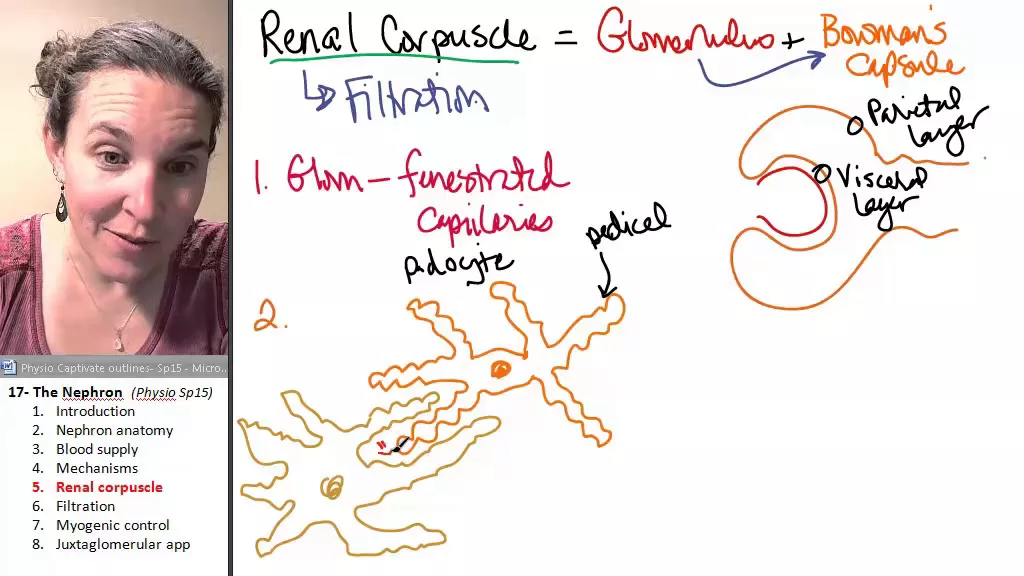 Renal Corpuscle = Glomerulus + Bowman's
Capsule
↳ Filtration
Parietal
layer
Visceral
Layer
1. Glom - fenestrated
capillaries
podocyte
pedicel
2.
Physio Captivate outlines- Sp15 - Micro...
17- The Nephron (Physio Sp15)
1. Introduction
2. Nephron anatomy
3. Blood supply
4. Mechanisms
5. Renal corpuscle
6. Filtration
7. Myogenic control
8. Juxtaglomerular app